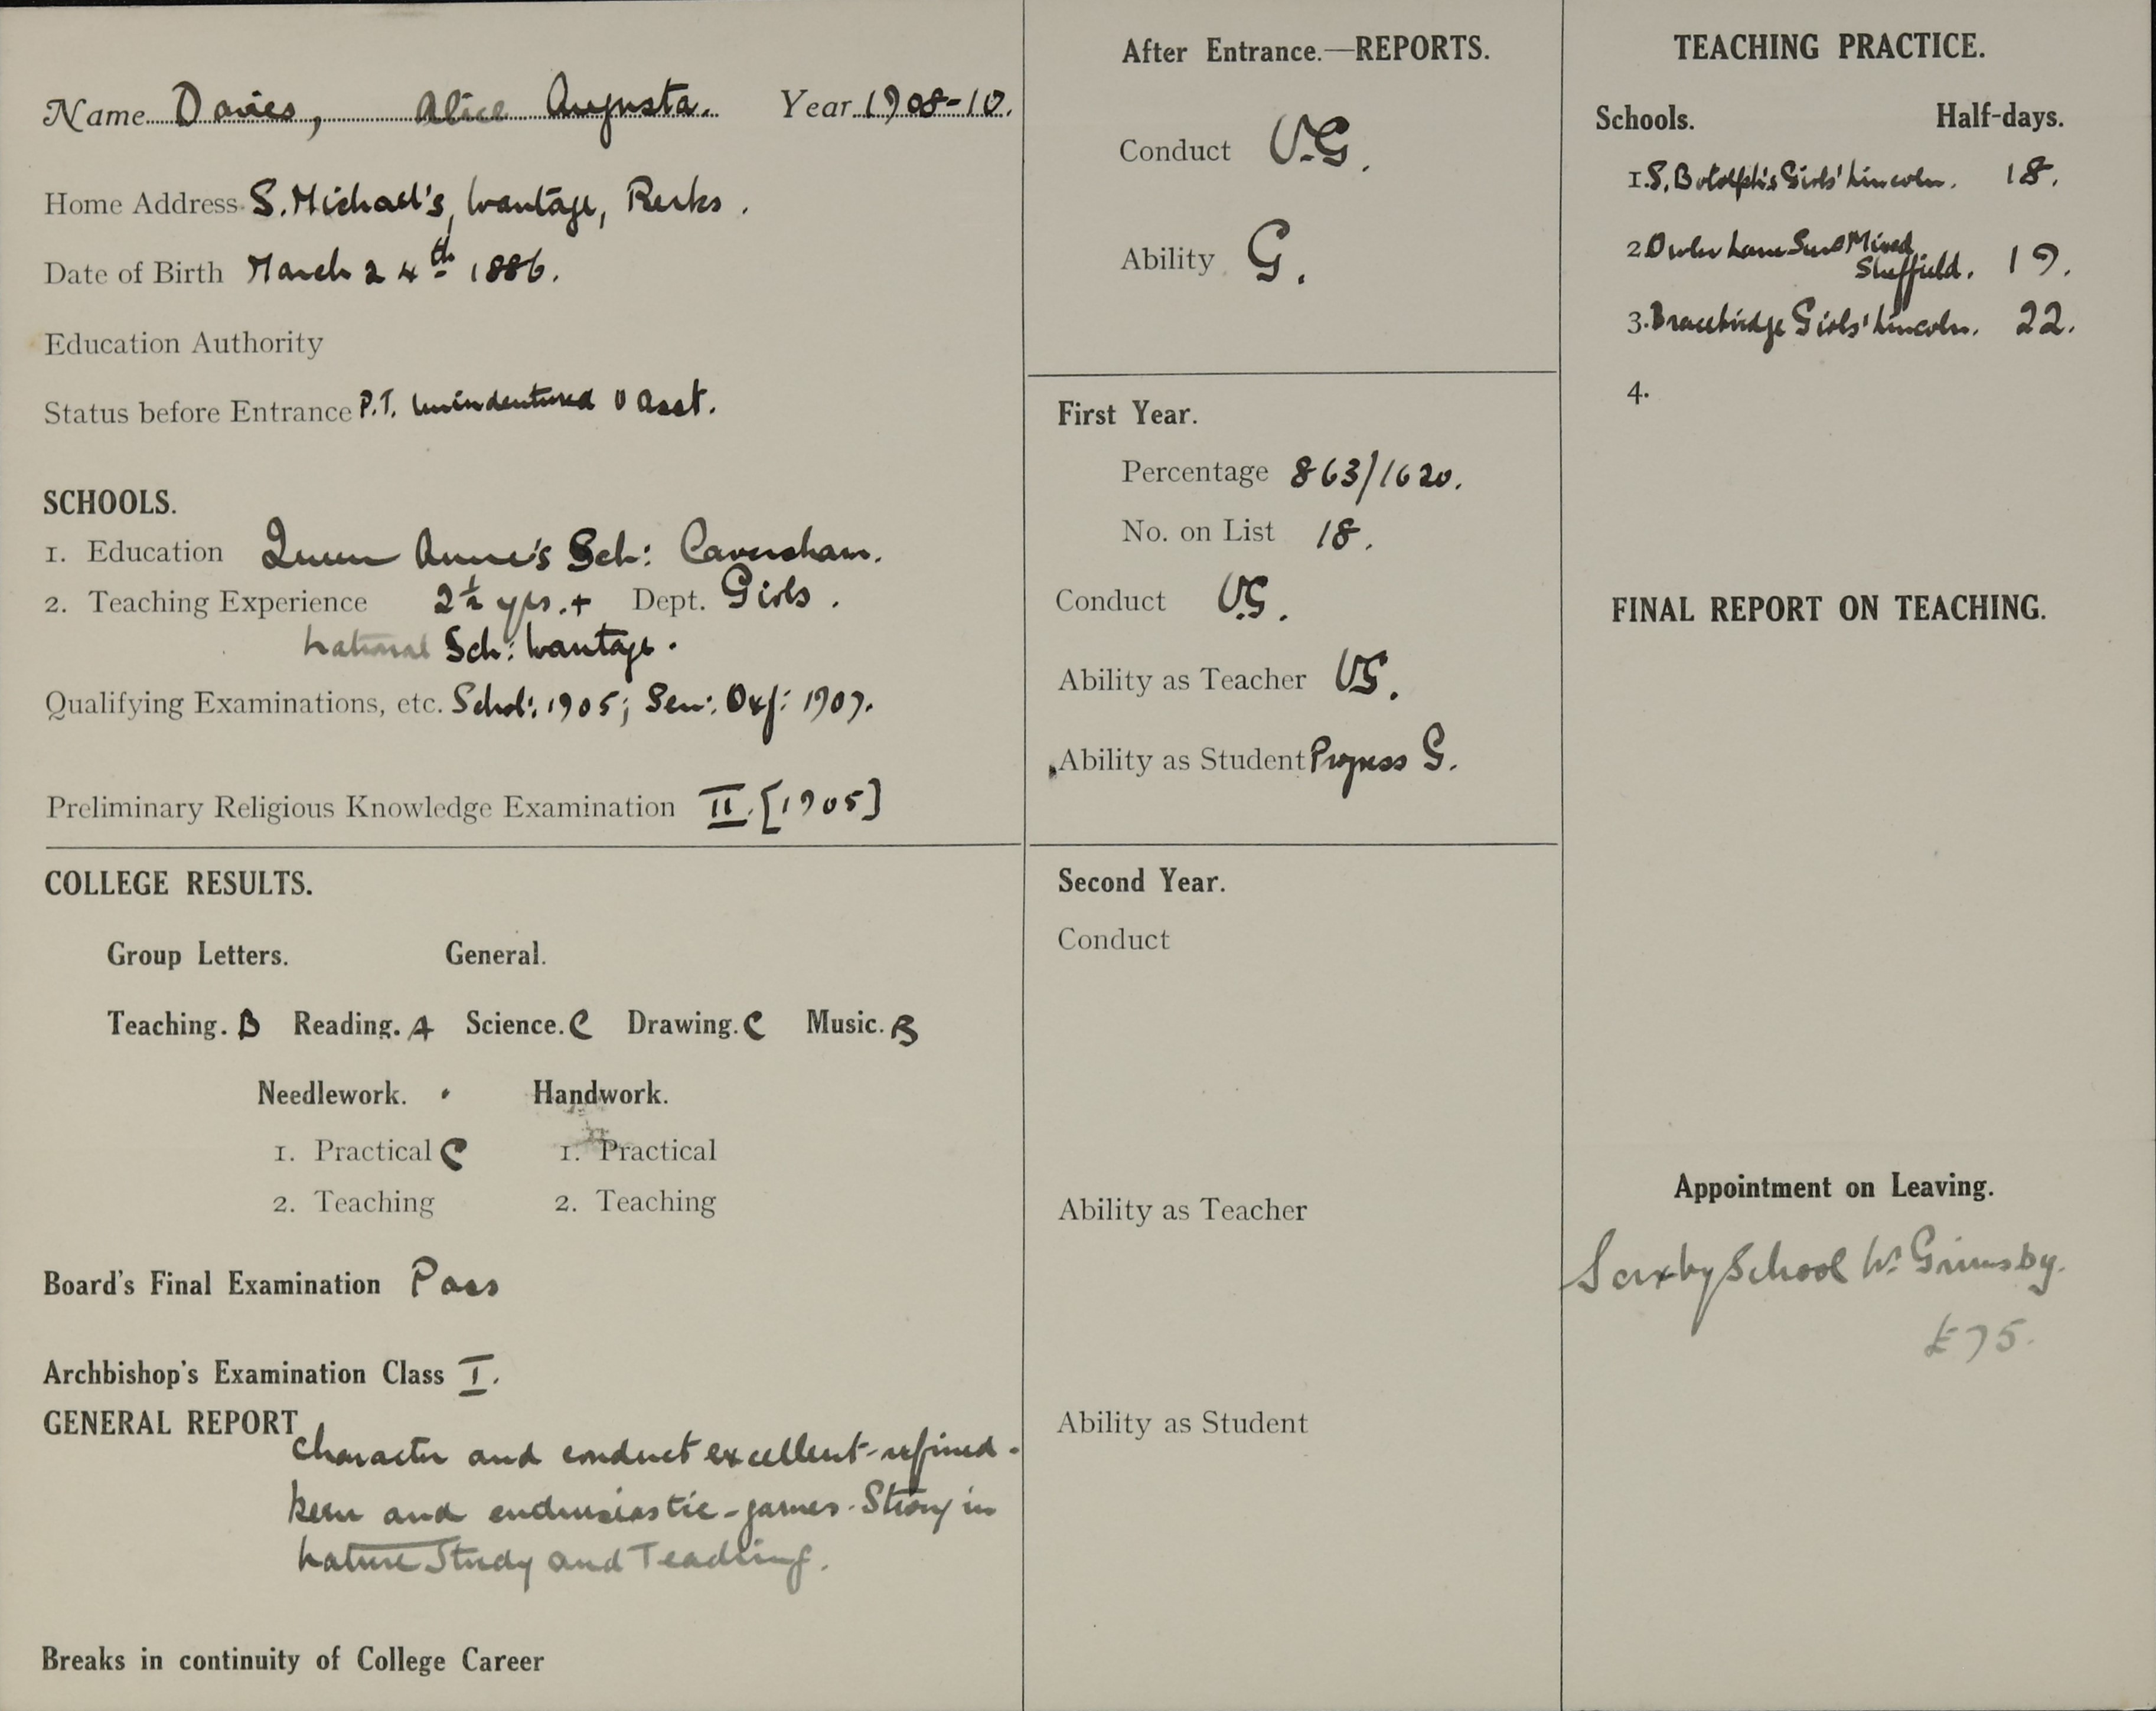 Name Davies, Alice Augusta. Year 1908-10.
Home Address S. Michael's, Wantage, Berks.
Date of Birth March 24th 1886.
Education Authority
Status before Entrance P.T. Unindentured U Asst.
SCHOOLS.
1. Education Queen Anne's Sch: Caversham.
2. Teaching Experience 2½ yrs. + Dept. Girls.
National Sch: Wantage.
Qualifying Examinations, etc. Schol: 1905; Sen: Oxf: 1907.
Preliminary Religious Knowledge Examination II. [1905]
COLLEGE RESULTS.
Group Letters. General.
Teaching. B Reading. A Science. C Drawing. C Music. B
Needlework. Handwork.
1. Practical C 1. Practical
2. Teaching 2. Teaching
Board's Final Examination Pass
Archbishop's Examination Class I.
GENERAL REPORT
Character and conduct excellent - refined -
keen and enthusiastic - games. Strong in
Nature Study and Teaching.
Breaks in continuity of College Career
After Entrance.—REPORTS.
Conduct V.G.
Ability G.
First Year.
Percentage 863/1620.
No. on List 18.
Conduct VG.
Ability as Teacher VG.
Ability as Student Progress G.
Second Year.
Conduct
Ability as Teacher
Ability as Student
TEACHING PRACTICE.
Schools. Half-days.
1. S. Botolph's Girls' Lincoln. 18.
2. Owler Lane Mixed
Sheffield. 19.
3. Bracebridge Girls' Lincoln. 22.
4.
FINAL REPORT ON TEACHING.
Appointment on Leaving.
Saxby School Nr. Grimsby.
£75.